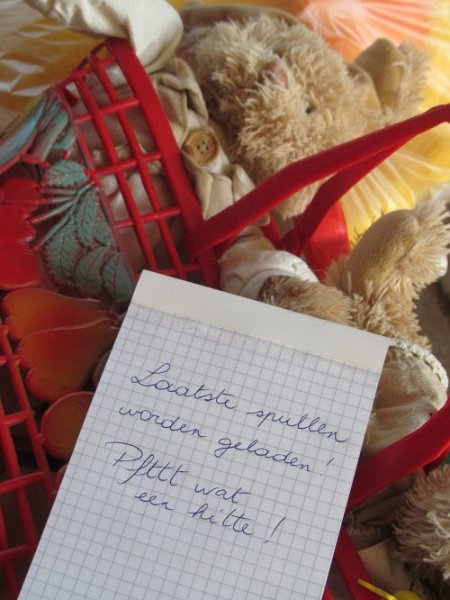 Laatste spullen
worden geladen!
Pfttt wat
een hitte!